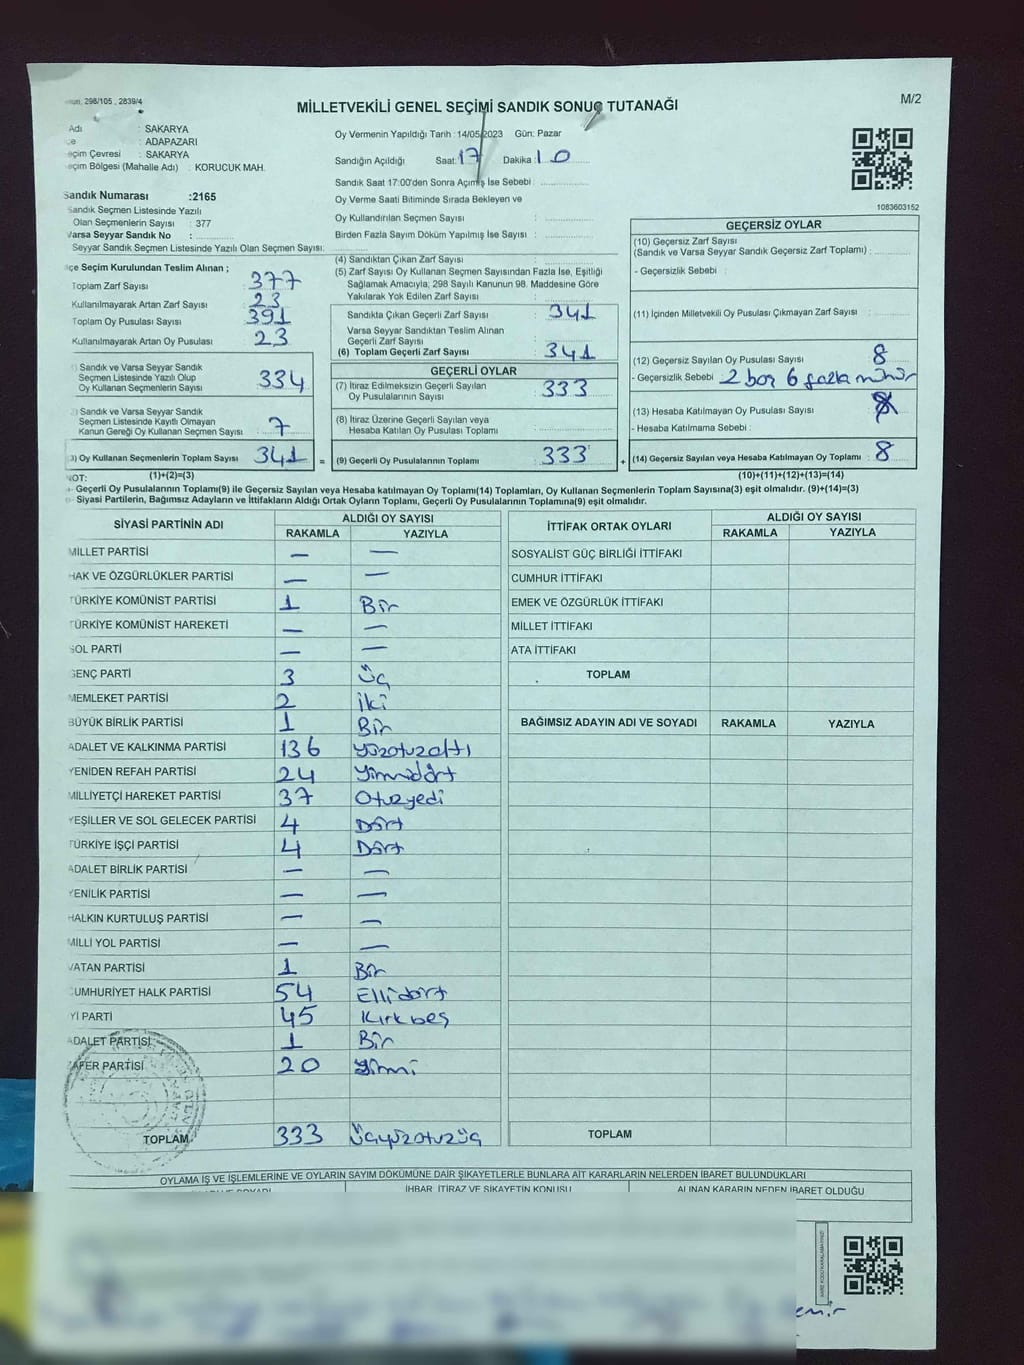 298/105 , 2839/4
M/2
MİLLETVEKİLİ GENEL SEÇİMİ SANDIK SONUÇ TUTANAĞI
Adı : SAKARYA
: ADAPAZARI
eçim Çevresi : SAKARYA
eçim Bölgesi (Mahalle Adı) : KORUCUK MAH.
Oy Vermenin Yapıldığı Tarih : 14/05/2023 Gün: Pazar
Sandığın Açıldığı Saat: 17 Dakika : 10
Sandık Saat 17:00'den Sonra Açımış İse Sebebi :
Oy Verme Saati Bitiminde Sırada Bekleyen ve
Oy Kullandırılan Seçmen Sayısı :
Birden Fazla Sayım Döküm Yapılmış İse Sayısı :
1083603152
Sandık Numarası :2165
Sandık Seçmen Listesinde Yazılı
Olan Seçmenlerin Sayısı : 377
Varsa Seyyar Sandık No :
Seyyar Sandık Seçmen Listesinde Yazılı Olan Seçmen Sayısı:
çe Seçim Kurulundan Teslim Alınan ;
Toplam Zarf Sayısı : 377
Kullanılmayarak Artan Zarf Sayısı : 23
Toplam Oy Pusulası Sayısı : 391
Kullanılmayarak Artan Oy Pusulası : 23
) Sandık ve Varsa Seyyar Sandık
Seçmen Listesinde Yazılı Olup
Oy Kullanan Seçmenlerin Sayısı : 334
) Sandık ve Varsa Seyyar Sandık
Seçmen Listesinde Kayıtlı Olmayan
Kanun Gereği Oy Kullanan Seçmen Sayısı : 7
3) Oy Kullanan Seçmenlerin Toplam Sayısı : 341 =
(4) Sandıktan Çıkan Zarf Sayısı :
(5) Zarf Sayısı Oy Kullanan Seçmen Sayısından Fazla İse, Eşitliği
Sağlamak Amacıyla; 298 Sayılı Kanunun 98. Maddesine Göre
Yakılarak Yok Edilen Zarf Sayısı :
Sandıkta Çıkan Geçerli Zarf Sayısı : 341
Varsa Seyyar Sandıktan Teslim Alınan
Geçerli Zarf Sayısı :
(6) Toplam Geçerli Zarf Sayısı : 341
GEÇERLİ OYLAR
(7) İtiraz Edilmeksizin Geçerli Sayılan
Oy Pusulalarının Sayısı : 333
(8) İtiraz Üzerine Geçerli Sayılan veya
Hesaba Katılan Oy Pusulası Toplamı :
(9) Geçerli Oy Pusulalarının Toplamı : 333 +
GEÇERSİZ OYLAR
(10) Geçersiz Zarf Sayısı
(Sandık ve Varsa Seyyar Sandık Geçersiz Zarf Toplamı) :
- Geçersizlik Sebebi :
(11) İçinden Milletvekili Oy Pusulası Çıkmayan Zarf Sayısı :
(12) Geçersiz Sayılan Oy Pusulası Sayısı : 8
- Geçersizlik Sebebi : 2 boş 6 fazla mühür
(13) Hesaba Katılmayan Oy Pusulası Sayısı :
- Hesaba Katılmama Sebebi :
(14) Geçersiz Sayılan veya Hesaba Katılmayan Oy Toplamı : 8
NOT: (1)+(2)=(3) (10)+(11)+(12)+(13)=(14)
- Geçerli Oy Pusulalarının Toplamı(9) ile Geçersiz Sayılan veya Hesaba katılmayan Oy Toplamı(14) Toplamları, Oy Kullanan Seçmenlerin Toplam Sayısına(3) eşit olmalıdır. (9)+(14)=(3)
Siyasi Partilerin, Bağımsız Adayların ve İttifakların Aldığı Ortak Oyların Toplamı, Geçerli Oy Pusulalarının Toplamına(9) eşit olmalıdır.
SİYASİ PARTİNİN ADI ALDIĞI OY SAYISI
RAKAMLA YAZIYLA
MİLLET PARTİSİ — —
HAK VE ÖZGÜRLÜKLER PARTİSİ — —
TÜRKİYE KOMÜNİST PARTİSİ 1 Bir
TÜRKİYE KOMÜNİST HAREKETİ — —
SOL PARTİ — —
GENÇ PARTİ 3 Üç
MEMLEKET PARTİSİ 2 İki
BÜYÜK BİRLİK PARTİSİ 1 Bir
ADALET VE KALKINMA PARTİSİ 136 Yüzotuzaltı
YENİDEN REFAH PARTİSİ 24 Yirmidört
MİLLİYETÇİ HAREKET PARTİSİ 37 Otuzyedi
YEŞİLLER VE SOL GELECEK PARTİSİ 4 Dört
TÜRKİYE İŞÇİ PARTİSİ 4 Dört
ADALET BİRLİK PARTİSİ — —
YENİLİK PARTİSİ — —
HALKIN KURTULUŞ PARTİSİ — —
MİLLİ YOL PARTİSİ — —
VATAN PARTİSİ 1 Bir
CUMHURİYET HALK PARTİSİ 54 Ellidört
İYİ PARTİ 45 Kırkbeş
ADALET PARTİSİ 1 Bir
ZAFER PARTİSİ 20 Yirmi
TOPLAM 333 Üçyüzotuzüç
İTTİFAK ORTAK OYLARI ALDIĞI OY SAYISI
RAKAMLA YAZIYLA
SOSYALİST GÜÇ BİRLİĞİ İTTİFAKI
CUMHUR İTTİFAKI
EMEK VE ÖZGÜRLÜK İTTİFAKI
MİLLET İTTİFAKI
ATA İTTİFAKI
TOPLAM
BAĞIMSIZ ADAYIN ADI VE SOYADI RAKAMLA YAZIYLA
TOPLAM
OYLAMA İŞ VE İŞLEMLERİNE VE OYLARIN SAYIM DÖKÜMÜNE DAİR ŞİKAYETLERLE BUNLARA AİT KARARLARIN NELERDEN İBARET BULUNDUKLARI
İHBAR, İTİRAZ VE ŞİKAYETİN KONUSU ALINAN KARARIN NEDEN İBARET OLDUĞU